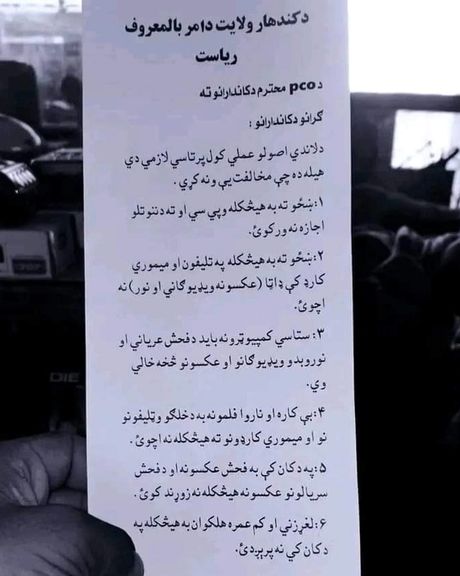 دکندهار ولایت دامر بالمعروف
ریاست
د pco محترم دکاندارانو ته
ګرانو دکاندارانو :
دلاندي اصولو عملي کول پرتاسي لازمي دي
هیله ده چې مخالفت یې ونه کړي .
۱: ښځو ته به هیڅکله وپي سي او ته دننوتلو
اجازه نه ورکوئ.
۲: ښځو ته به هیڅکله په تلیفون او میموري
کارډ کې ډاټا (عکسونه ویډیوګاني او نور) نه
اچوئ.
۳: ستاسي کمپیوټرونه باید دفحش عریاني او
نورو بدو ویډیوګانو او عکسونو څخه خالي
وي.
۴: بې کاره او ناروا فلمونه به دخلګو وټلیفونو
نو او میموري کارډونو ته هیڅکله نه اچوئ .
۵: په دکان کې به فحش عکسونه او دفحش
سریالونو عکسونه هیڅکله نه زوړند کوئ .
۶: لغړزني او کم عمره هلکوان به هیڅکله په
دکان کي نه پرېږدئ.